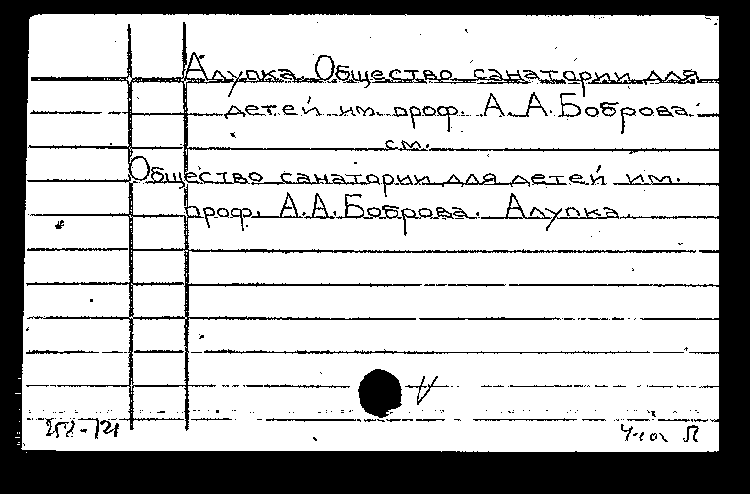 Алупка. Общество санатории для
детей им. проф. А. А. Боброва
см.
Общество санатории для детей им.
проф. А. А. Боброва. Алупка.
V